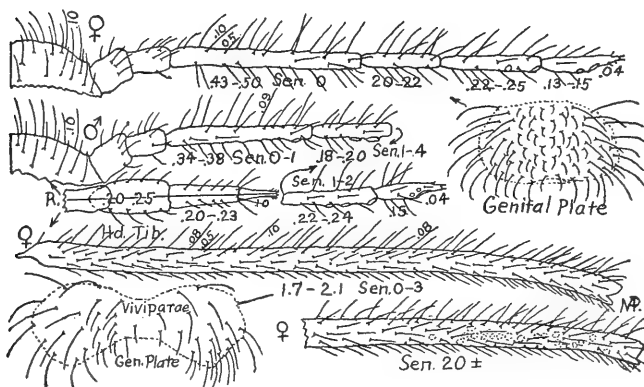 .10 ♀ .10 .05
.43-.50 Sen. 0 .20-.22 .22-.25 .13-.15 .04
.10 ♂ .09
.34-.38 Sen. 0-1 .18-.20 Sen. 1-4
Sen. 1-2
R. .20-.25 .20-.23 .10 .22-.24 .15 .04
Genital Plate
♀ Hd. Tib. .08 .05 .10 .08
1.7-2.1 Sen. 0-3
Viviparae
Gen. Plate
♀ Sen. 20 ±